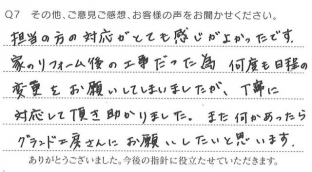 Q7 その他、ご意見ご感想、お客様の声をお聞かせください。
担当の方の対応がとても感じが良かったです。
家のリフォーム後の工事だった為 何度も日程の
変更をお願いしてしまいましたが、丁寧に
対応して頂き助かりました。また何かあったら
グランド工房さんにお願いしたいと思います.
ありがとうございました。今後の指針に役立たせていただきます。